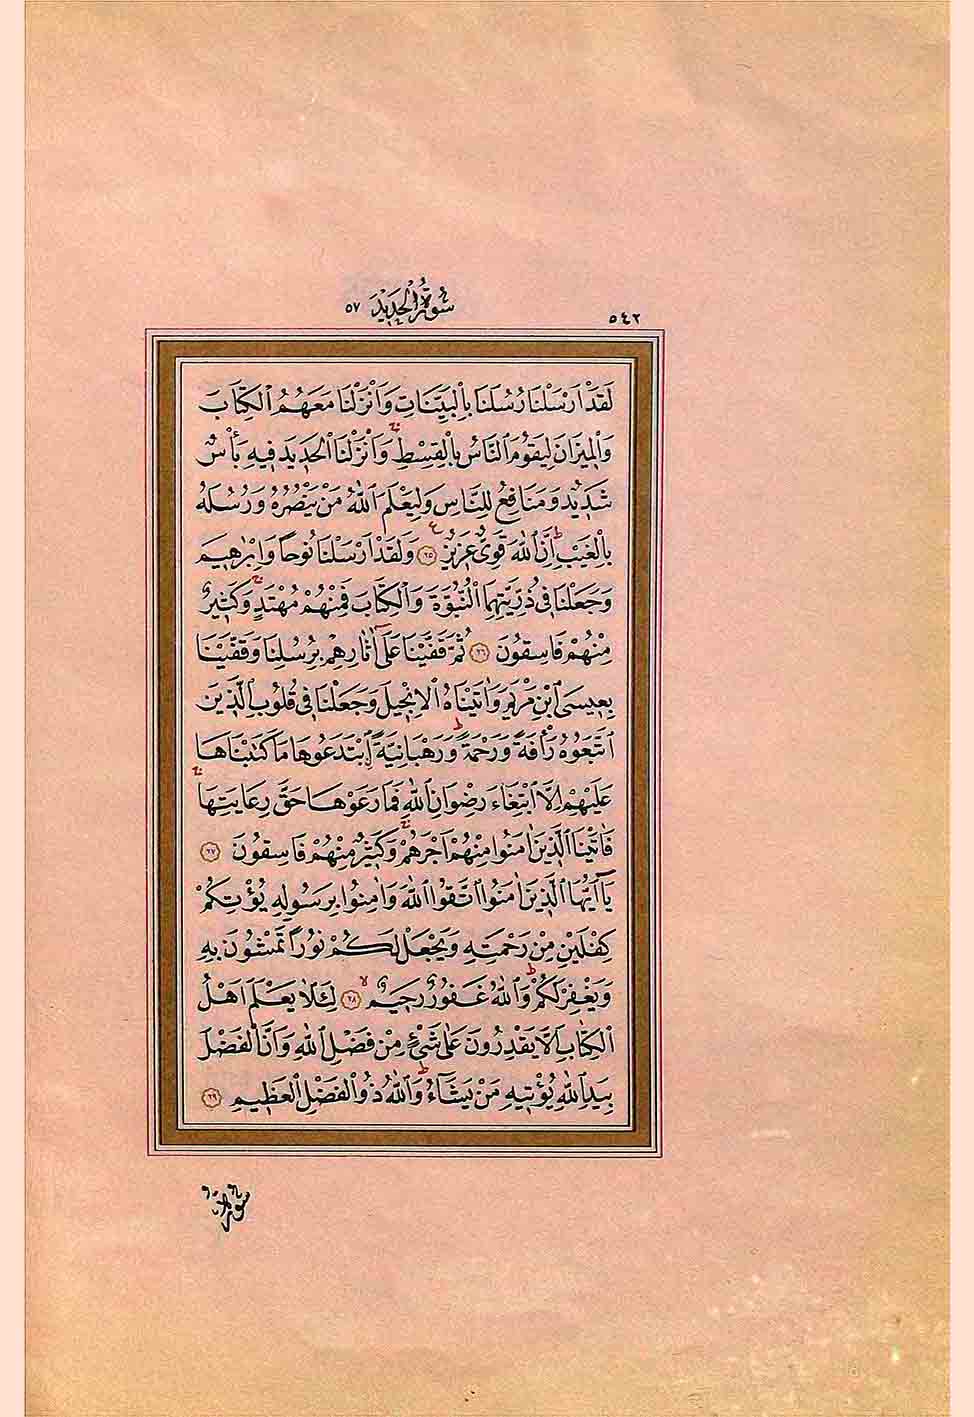 ٥٤٢
سُورَةُ الْحَدِيدِ ٥٧
لَقَدْ اَرْسَلْنَا رُسُلَنَا بِالْبَيِّنَاتِ وَاَنْزَلْنَا مَعَهُمُ الْكِتَابَ
وَالْمِيزَانَ لِيَقُومَ النَّاسُ بِالْقِسْطِۚ وَاَنْزَلْنَا الْحَدِيدَ فِيهِ بَأْسٌ
شَدِيدٌ وَمَنَافِعُ لِلنَّاسِ وَلِيَعْلَمَ اللّٰهُ مَنْ يَنْصُرُهُ وَرُسُلَهُ
بِالْغَيْبِۜ اِنَّ اللّٰهَ قَوِيٌّ عَزِيزٌ ﴿٢٥﴾ وَلَقَدْ اَرْسَلْنَا نُوحًا وَاِبْرٰهِيمَ
وَجَعَلْنَا فِي ذُرِّيَّتِهِمَا النُّبُوَّةَ وَالْكِتَابَ فَمِنْهُمْ مُهْتَدٍۚ وَكَثِيرٌ
مِنْهُمْ فَاسِقُونَ ﴿٢٦﴾ ثُمَّ قَفَّيْنَا عَلٰٓى اٰثَارِهِمْ بِرُسُلِنَا وَقَفَّيْنَا
بِعِيسَى ابْنِ مَرْيَمَ وَاٰتَيْنَاهُ الْاِنْجِيلَ وَجَعَلْنَا فِي قُلُوبِ الَّذِينَ
اتَّبَعُوهُ رَأْفَةً وَرَحْمَةًۜ وَرَهْبَانِيَّةًۨ ابْتَدَعُوهَا مَا كَتَبْنَاهَا
عَلَيْهِمْ اِلَّا ابْتِغَاءَ رِضْوَانِ اللّٰهِ فَمَا رَعَوْهَا حَقَّ رِعَايَتِهَاۚ
فَاٰتَيْنَا الَّذِينَ اٰمَنُوا مِنْهُمْ اَجْرَهُمْۚ وَكَثِيرٌ مِنْهُمْ فَاسِقُونَ ﴿٢٧﴾
يَٓا اَيُّهَا الَّذِينَ اٰمَنُوا اتَّقُوا اللّٰهَ وَاٰمِنُوا بِرَسُولِهِ يُؤْتِكُمْ
كِفْلَيْنِ مِنْ رَحْمَتِهِ وَيَجْعَلْ لَكُمْ نُورًا تَمْشُونَ بِهِ
وَيَغْفِرْ لَكُمْۜ وَاللّٰهُ غَفُورٌ رَحِيمٌۙ ﴿٢٨﴾ لِئَلَّا يَعْلَمَ اَهْلُ
الْكِتَابِ اَلَّا يَقْدِرُونَ عَلٰى شَيْءٍ مِنْ فَضْلِ اللّٰهِ وَاَنَّ الْفَضْلَ
بِيَدِ اللّٰهِ يُؤْتِيهِ مَنْ يَشَٓاءُۜ وَاللّٰهُ ذُو الْفَضْلِ الْعَظِيمِ ﴿٢٩﴾